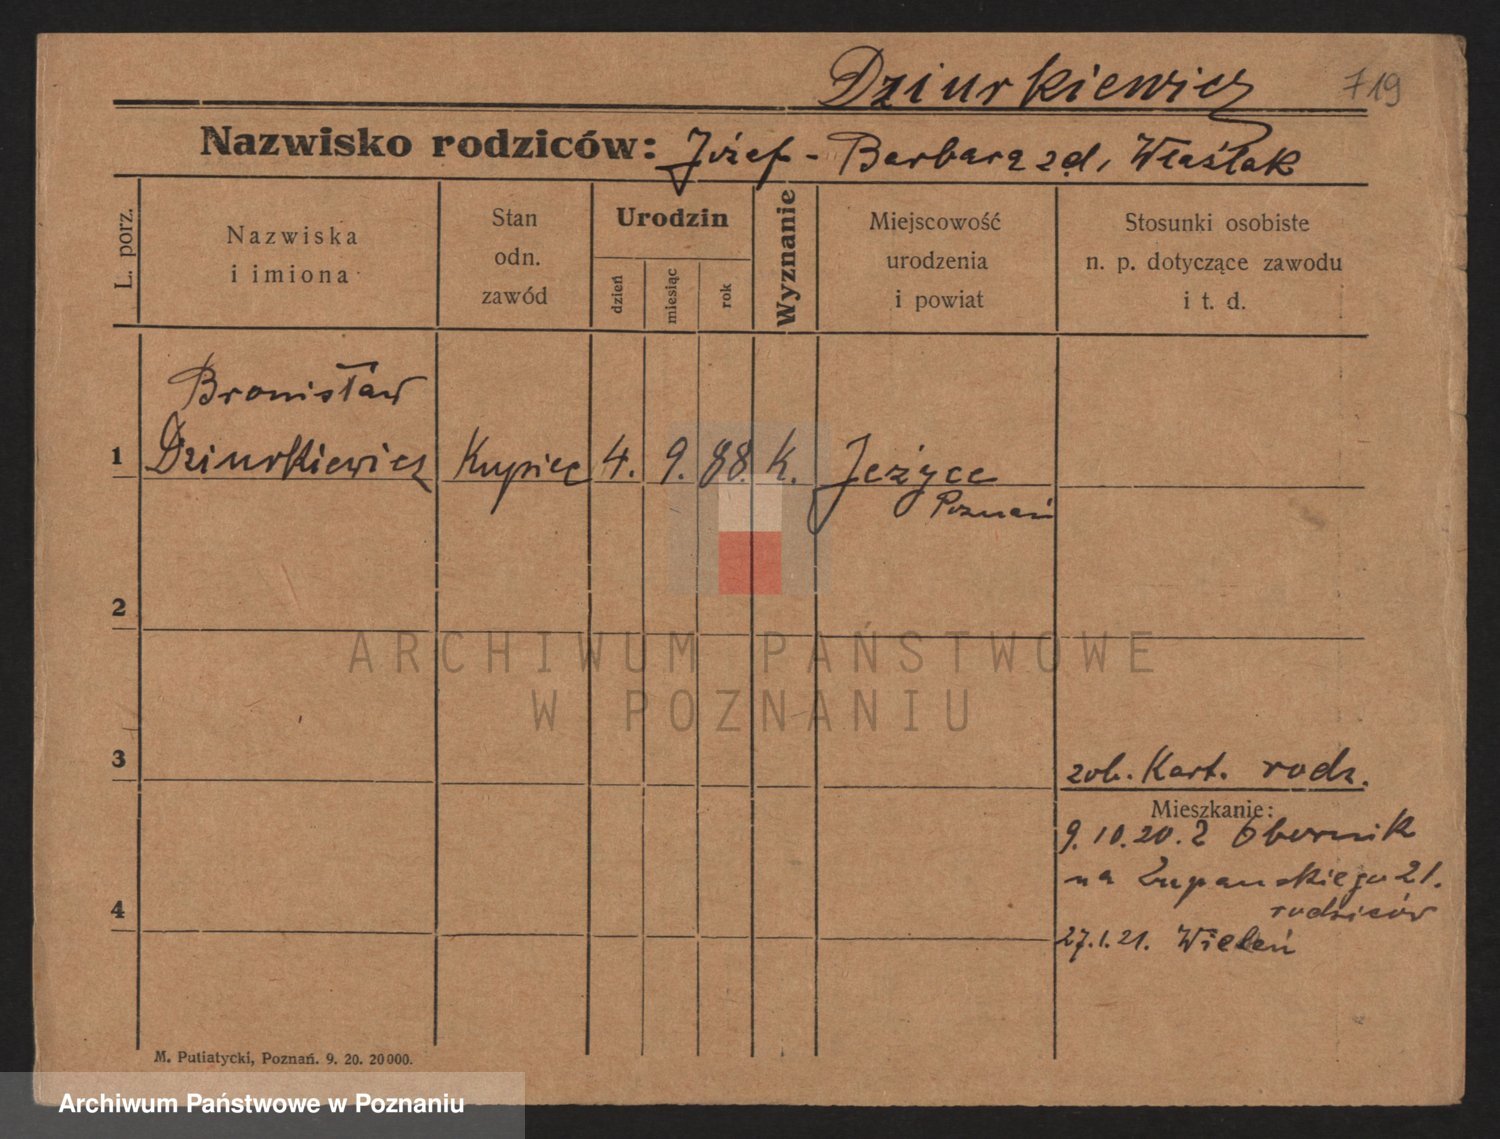 Dziurkiewicz 719
Nazwisko rodziców: Józef - Barbara zd. Właślak
L. porz.
Nazwiska
i imiona
Stan
odn.
zawód
Urodzin
dzień
miesiąc
rok
Wyznanie
Miejscowość
urodzenia
i powiat
Stosunki osobiste
n. p. dotyczące zawodu
i t. d.
Bronisław
1 Dziurkiewicz Kupiec 4. 9. 88. K. Jeżyce
Poznań
2
ARCHIWUM PAŃSTWOWE
W POZNANIU
3
zob. Kart. rodz.
Mieszkanie:
9.10.20. z Obornik
na Żupańskiego 21.
rodziców
4
27.1.21. Wieleń
M. Putiatycki, Poznań. 9. 20. 20000.
Archiwum Państwowe w Poznaniu